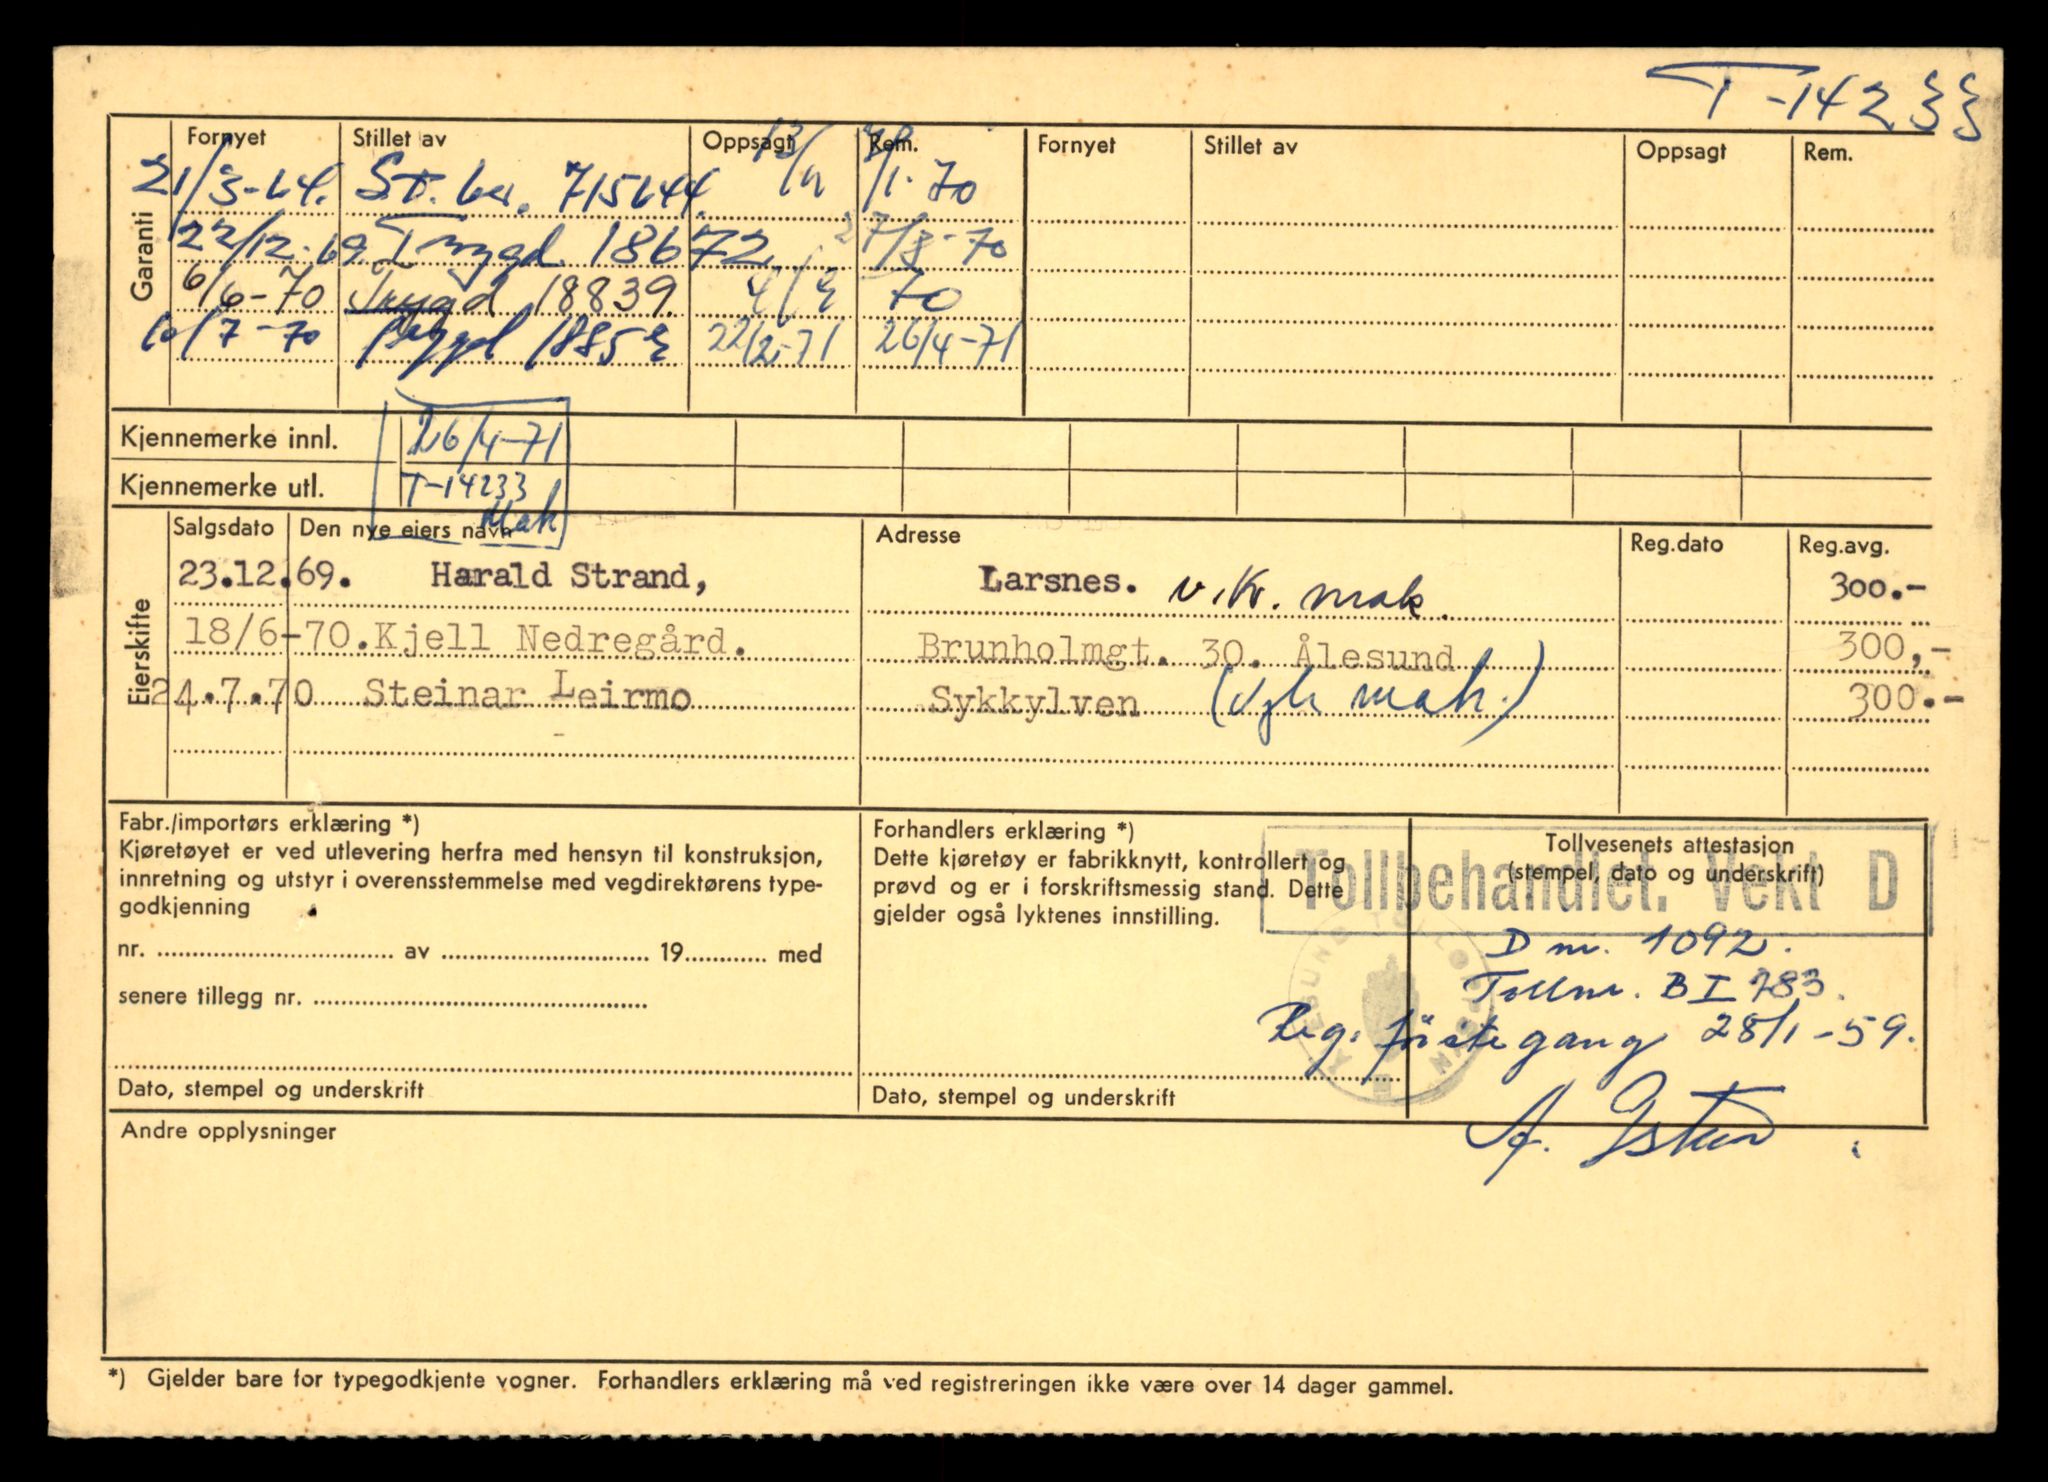 T-14233
Garanti
Fornyet Stillet av Oppsagt Rem. Fornyet Stillet av Oppsagt Rem.
21/3-64. St. ber. 715644. 13/11 /1-70
22/12-69 Trygd. 18672 27/8-70
6/6-70 Trygd 18839. 70
10/7-70 Trygd 1885 22/2-71 26/4-71
Kjennemerke innl. 26/4-71
Kjennemerke utl. T-14233
Mak
Eierskifte
Salgsdato Den nye eiers navn Adresse Reg.dato Reg.avg.
23.12.69. Harald Strand, Larsnes. v. Kr. mak. 300.-
18/6-70. Kjell Nedregård. Brunholmgt. 30. Ålesund 300,-
24.7.70 Steinar Leirmo Sykkylven (Vgh mak.) 300.-
Fabr./importørs erklæring *)
Kjøretøyet er ved utlevering herfra med hensyn til konstruksjon,
innretning og utstyr i overensstemmelse med vegdirektørens type-
godkjenning
nr. ........ av ........ 19........ med
senere tillegg nr. ........
Dato, stempel og underskrift
Forhandlers erklæring *)
Dette kjøretøy er fabrikknytt, kontrollert og
prøvd og er i forskriftsmessig stand. Dette
gjelder også lyktenes innstilling.
Dato, stempel og underskrift
Tollvesenets attestasjon
(stempel, dato og underskrift)
Tollbehandlet. Vekt D
D nr. 1092.
Tollnr. B I 783.
Reg. første gang 28/1-59.
Andre opplysninger
*) Gjelder bare for typegodkjente vogner. Forhandlers erklæring må ved registreringen ikke være over 14 dager gammel.